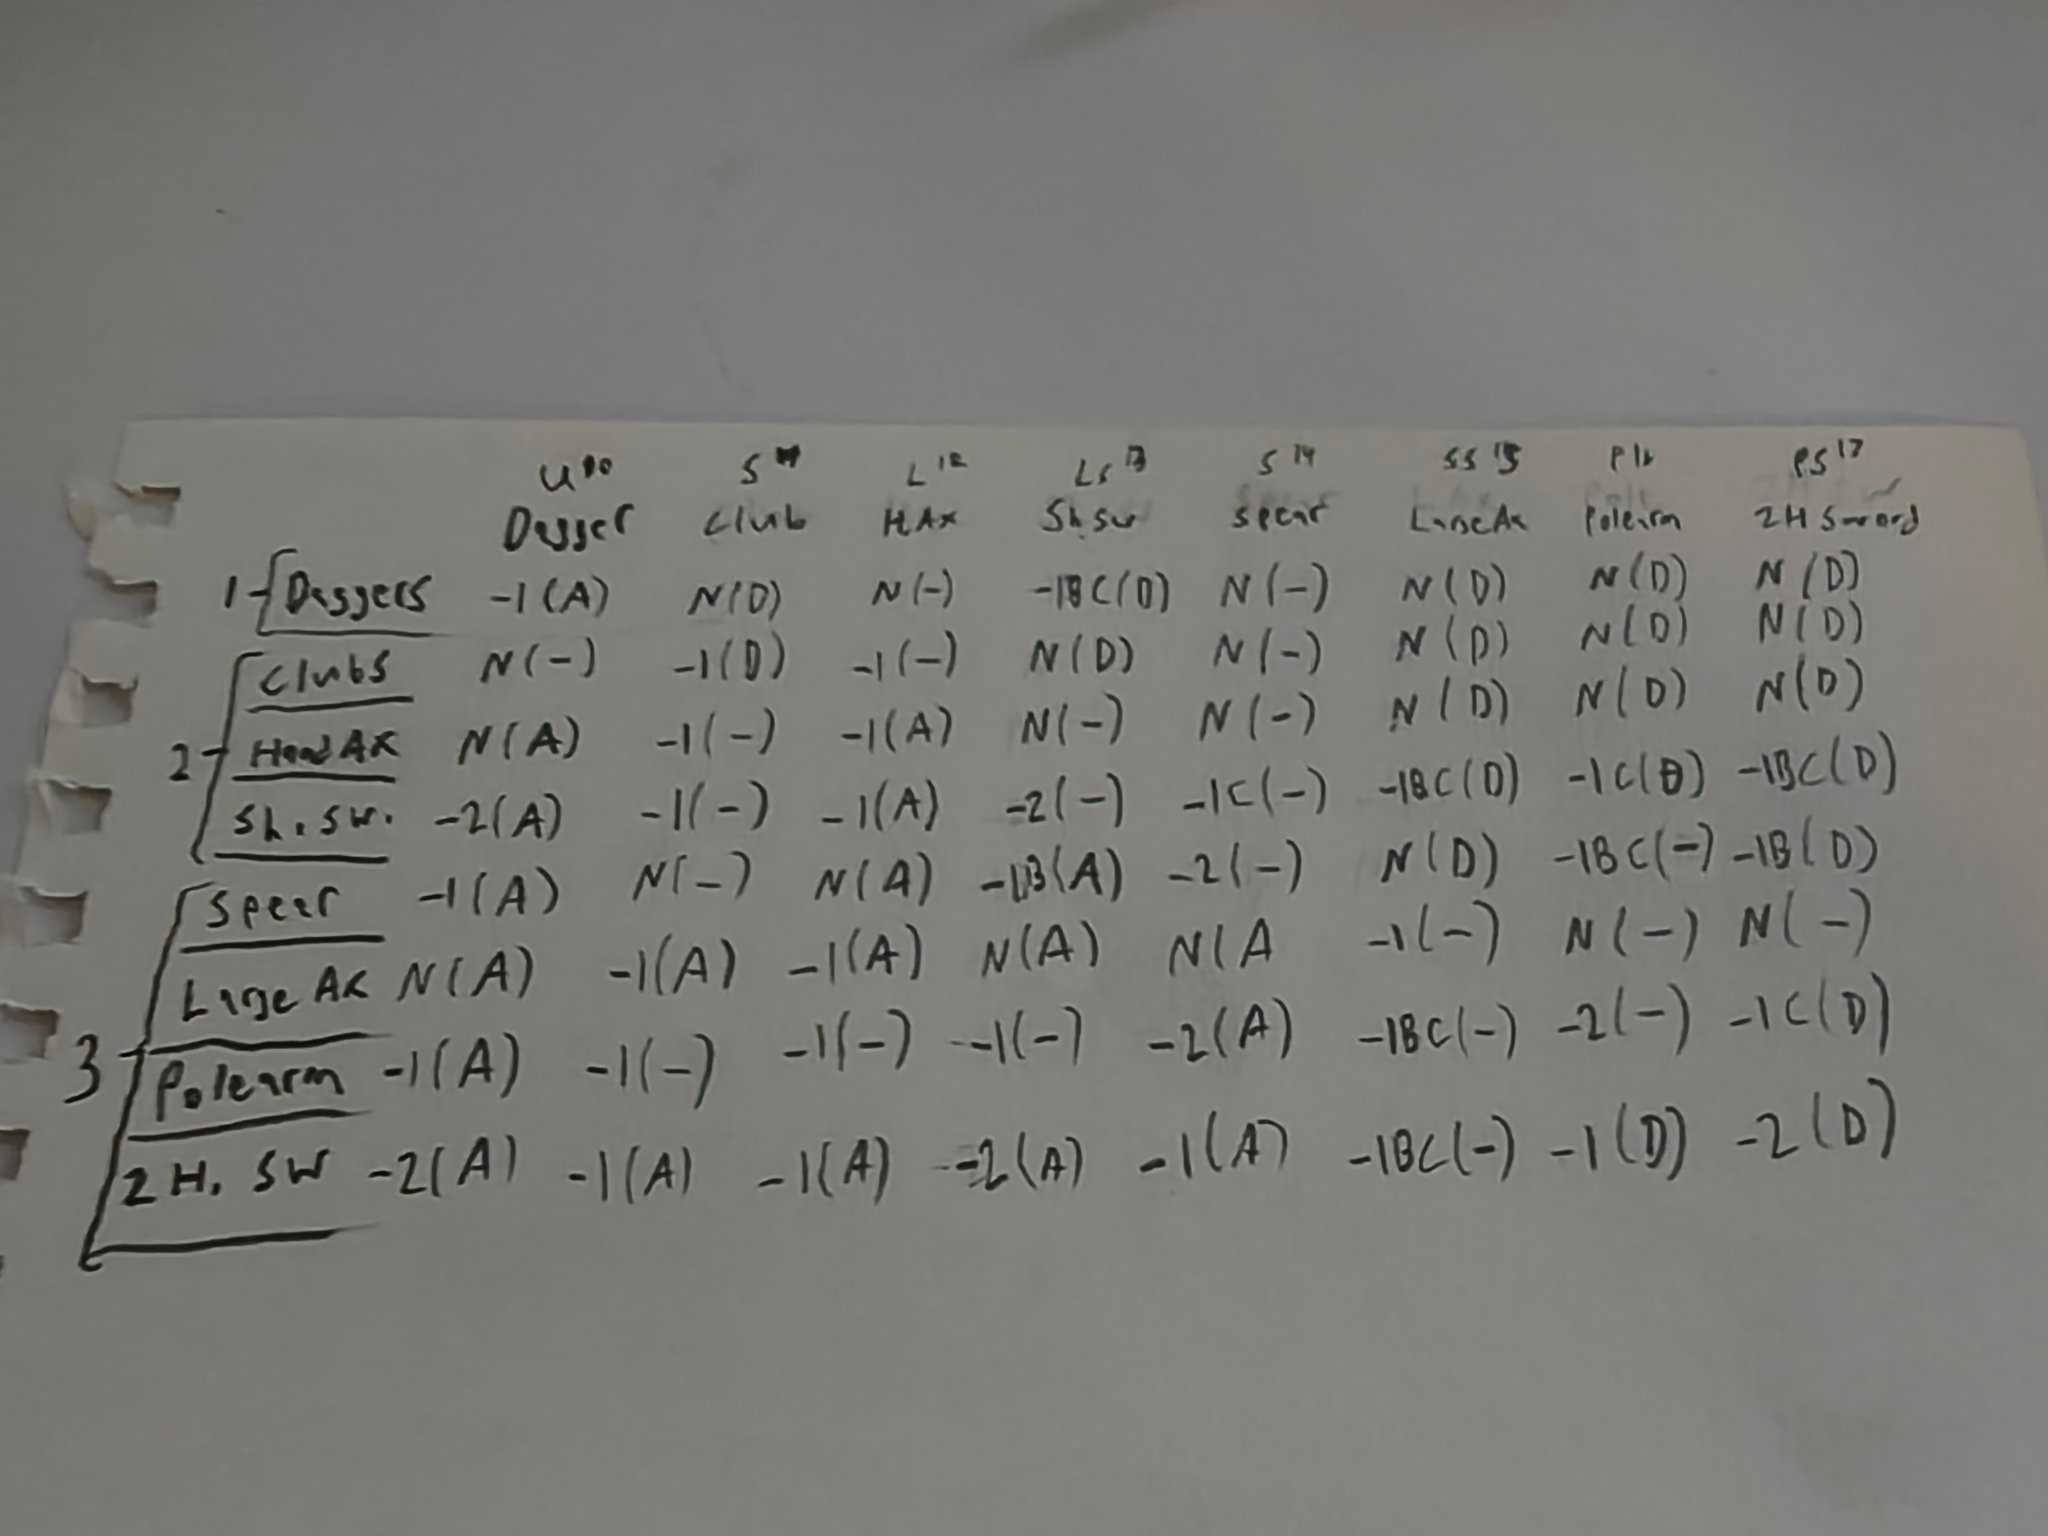 U10 S11 L12 LS13 S14 SS15 P16 PS17
Dagger Club HAx ShSw Spear LargeAx Polearm 2H Sword
1 Daggers -1(A) N(D) N(-) -1BC(D) N(-) N(D) N(D) N(D)
Clubs N(-) -1(D) -1(-) N(D) N(-) N(D) N(D) N(D)
2 Hand Ax N(A) -1(-) -1(A) N(-) N(-) N(D) N(D) N(D)
Sh. Sw. -2(A) -1(-) -1(A) -2(-) -1C(-) -1BC(D) -1C(D) -1BC(D)
Spear -1(A) N(-) N(A) -1B(A) -2(-) N(D) -1BC(-) -1B(D)
Large Ax N(A) -1(A) -1(A) N(A) N(A -1(-) N(-) N(-)
3 Polearm -1(A) -1(-) -1(-) -1(-) -2(A) -1BC(-) -2(-) -1C(D)
2H. SW -2(A) -1(A) -1(A) -2(A) -1(A) -1BC(-) -1(D) -2(D)